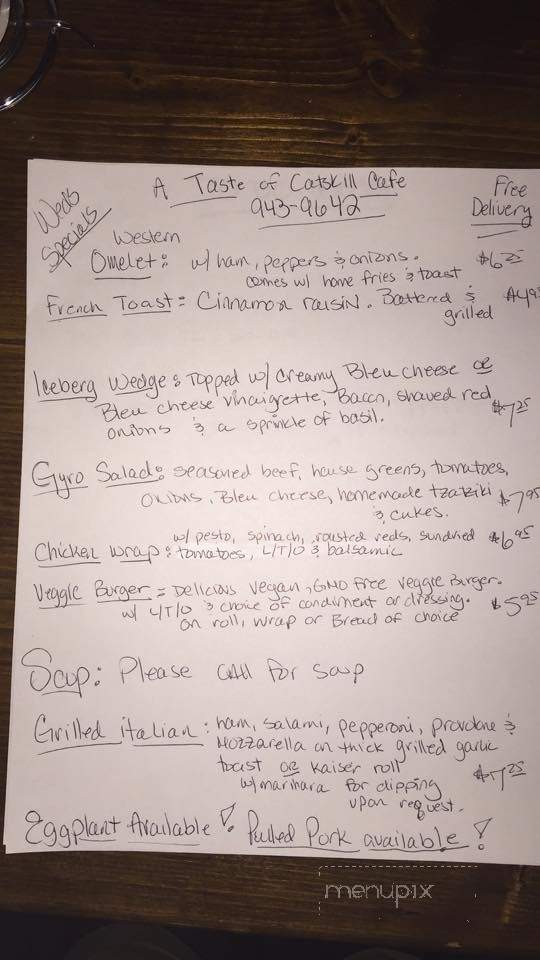 Weds
Specials
A Taste of Catskill Cafe
943-9642
Free
Delivery
Western
Omelet: w/ ham, peppers & onions. $6.25
comes w/ home fries & toast
French Toast = Cinnamon raisin. Battered & $4.95
grilled
Iceberg Wedge: Topped w/ creamy Bleu cheese or
Bleu cheese vinaigrette, Bacon, shaved red $7.25
onions & a sprinkle of basil.
Gyro Salad: seasoned beef, house greens, tomatoes,
onions, Bleu cheese, homemade tzatziki $7.95
& cukes.
w/ pesto, spinach, roasted reds, sundried $6.95
Chicken Wrap: tomatoes, L/T/O & balsamic
Veggie Burger = Delicious vegan, GMO Free veggie Burger.
w/ L/T/O & choice of condiment or dressing. $5.95
on roll, wrap or Bread of choice
Soup: Please call for soup
Grilled italian: ham, salami, pepperoni, provolone &
Mozzarella on thick grilled garlic
toast or kaiser roll $7.25
w/ marinara for dipping
upon request.
Eggplant Available! Pulled Pork available!
menupix